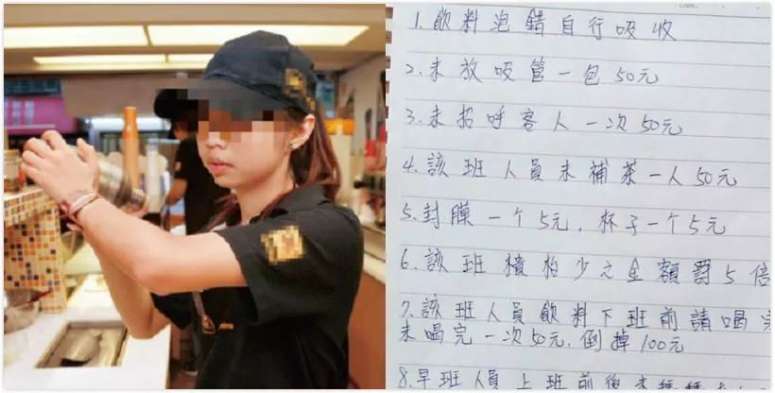 1.飲料泡錯自行吸收
2.未放吸管一包50元
3.未招呼客人一次50元
4.該班人員未補茶一人50元
5.封膜一个5元,杯子一个5元
6.該班櫃枱少之金額罰5倍
7.該班人員飲料下班前請喝完
未喝完一次50元,倒掉100元
8.早班人員上班前後未